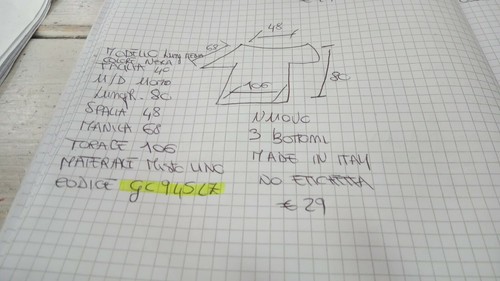 48
68
80
106
MODELLO LUNG NERA
COLORE NERA
TAGLIA 40
M/D MONO
LUNGH. 80
SPALLA 48
MANICA 68
TORACE 106
MATERIALE MISTO LINO
CODICE GC945LZ
NUOVO
3 BOTTONI
MADE IN ITALY
NO ETICHETTA
€ 29